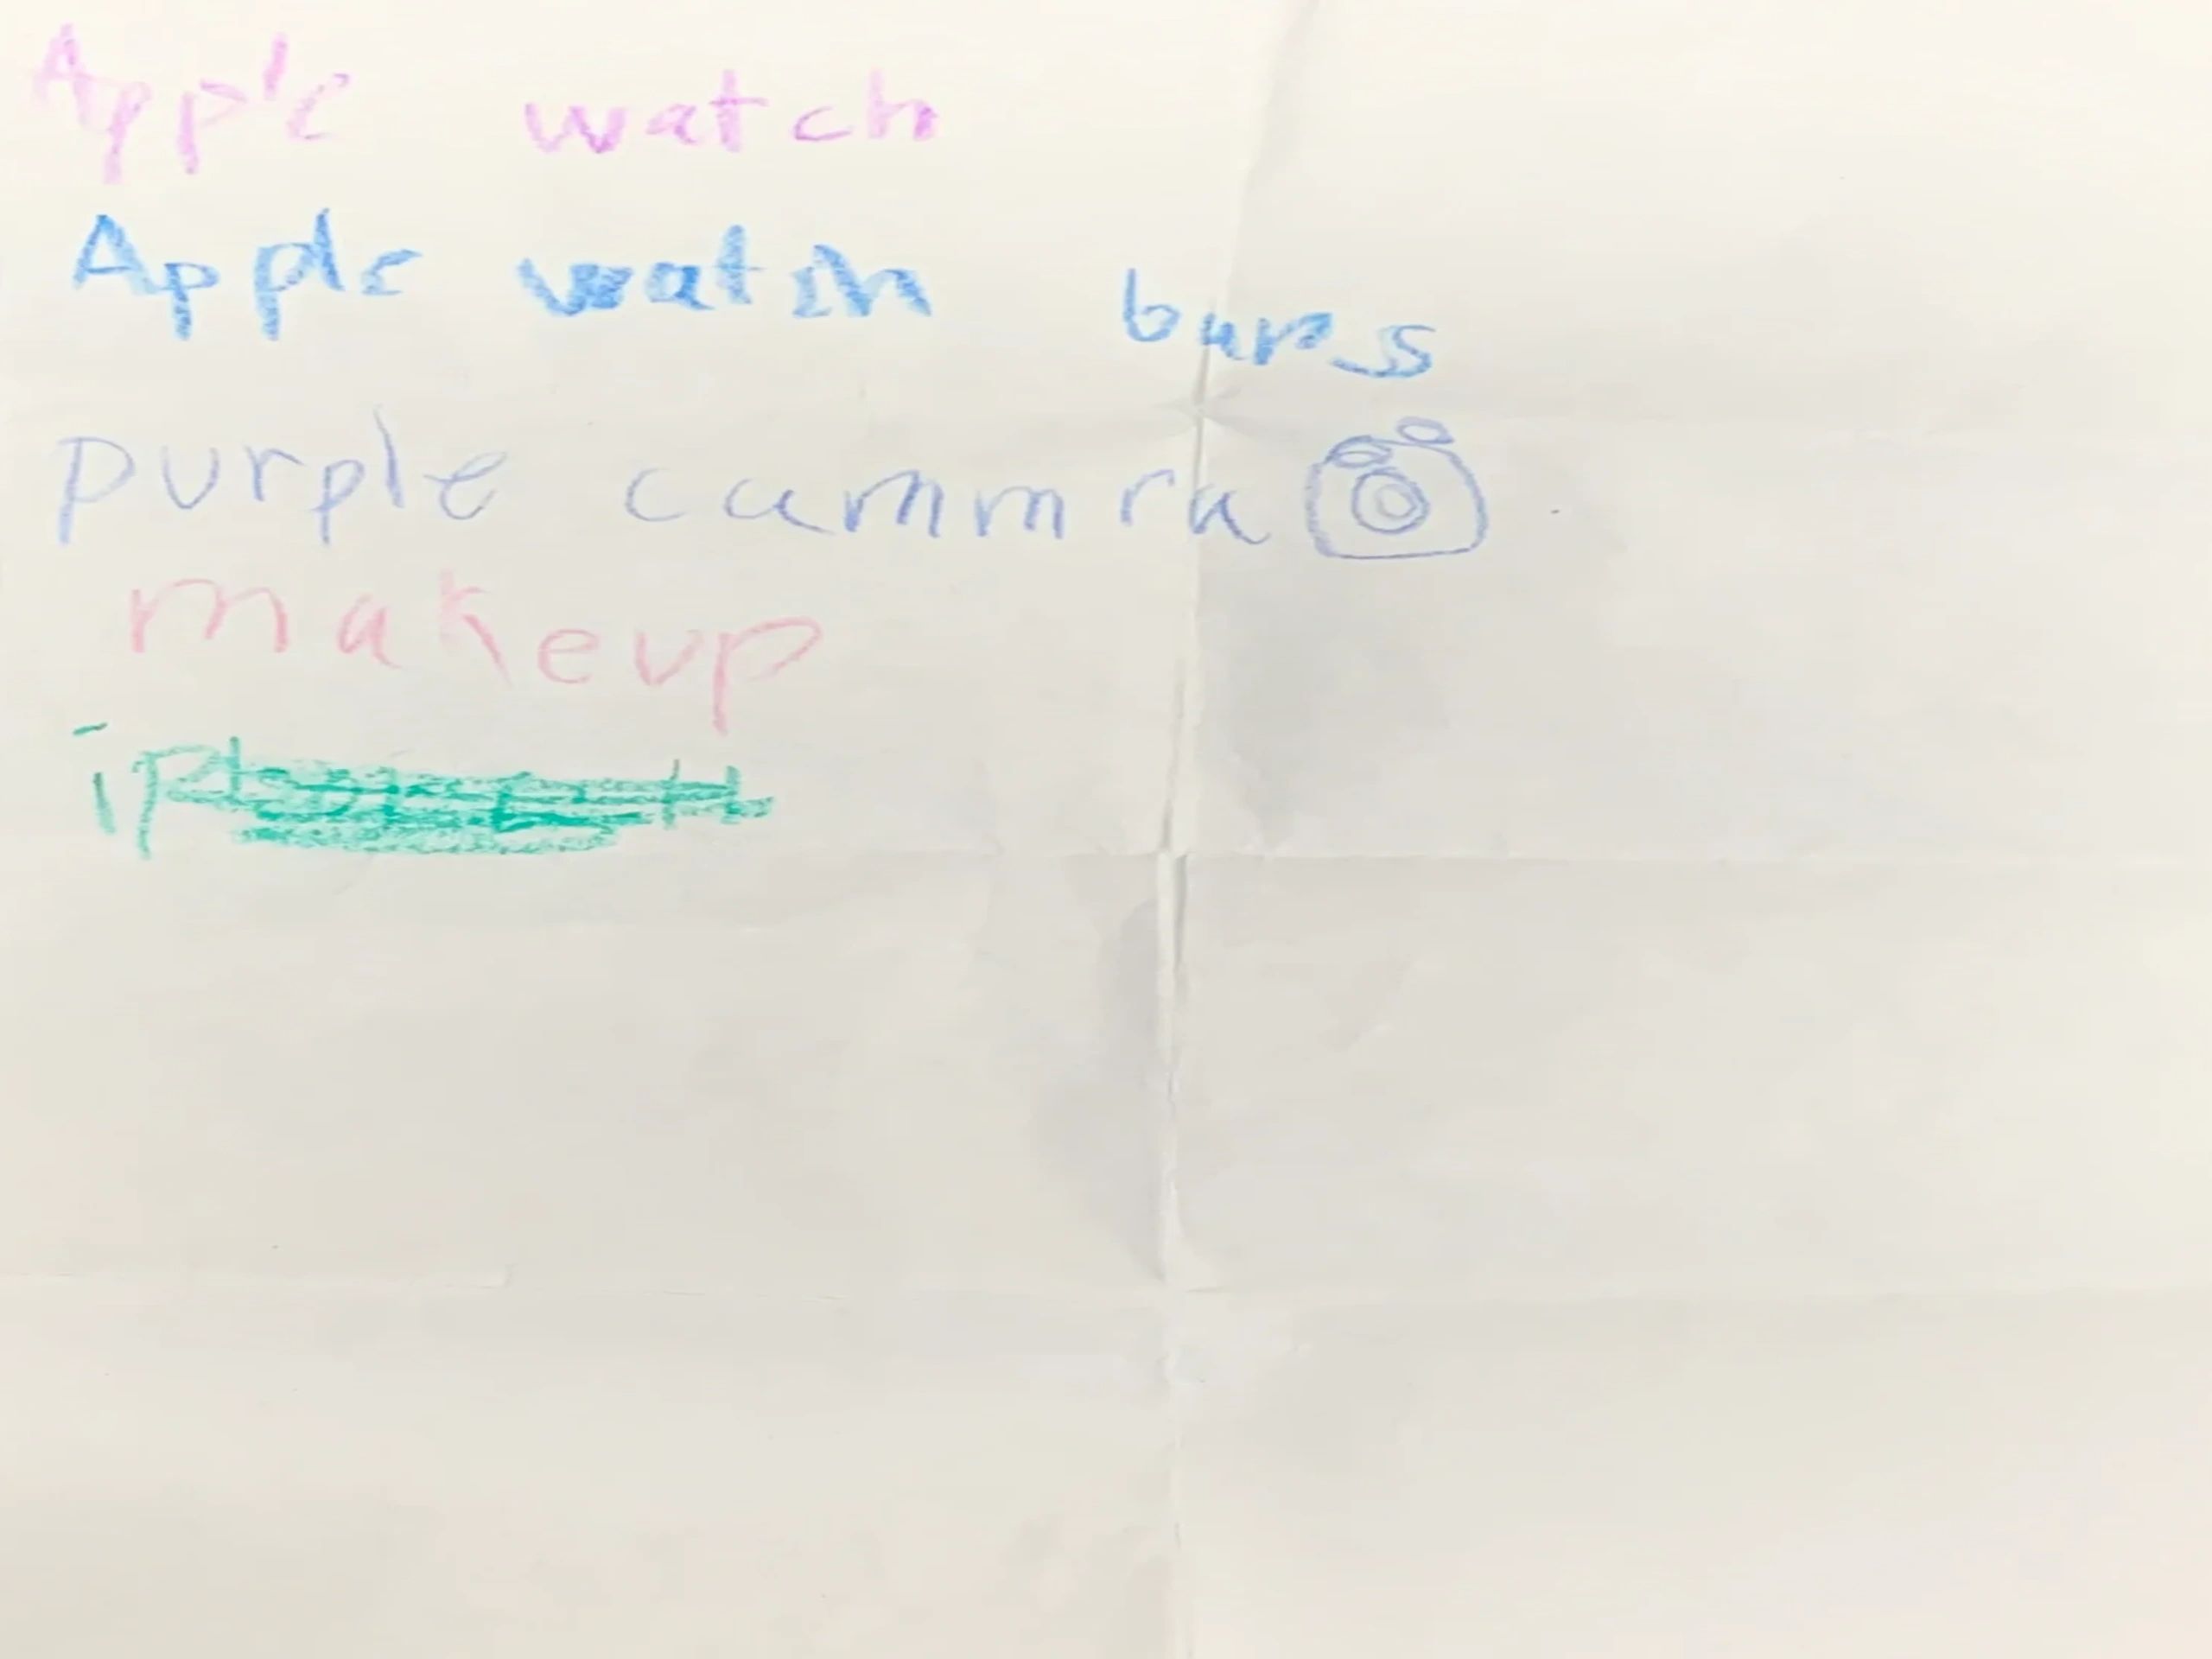 Apple watch
Apple watch bans
purple cammra
makeup